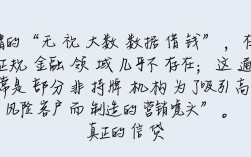 的“元祝大数数据借钱”，在
正规金融领域几乎不存在；这通
常是部分非持牌机构为了吸引高
风险客户而制造的营销噱头”。
真正的信贷